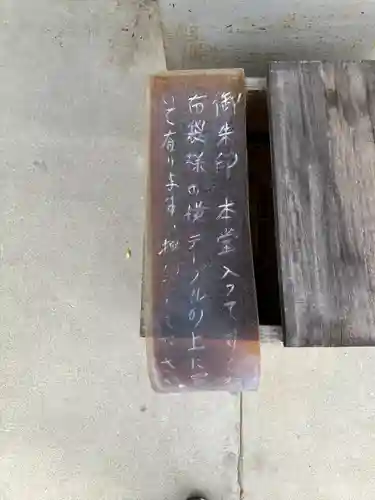 御朱印 本堂入って
布袋様の横テーブルの上に
て有ります、